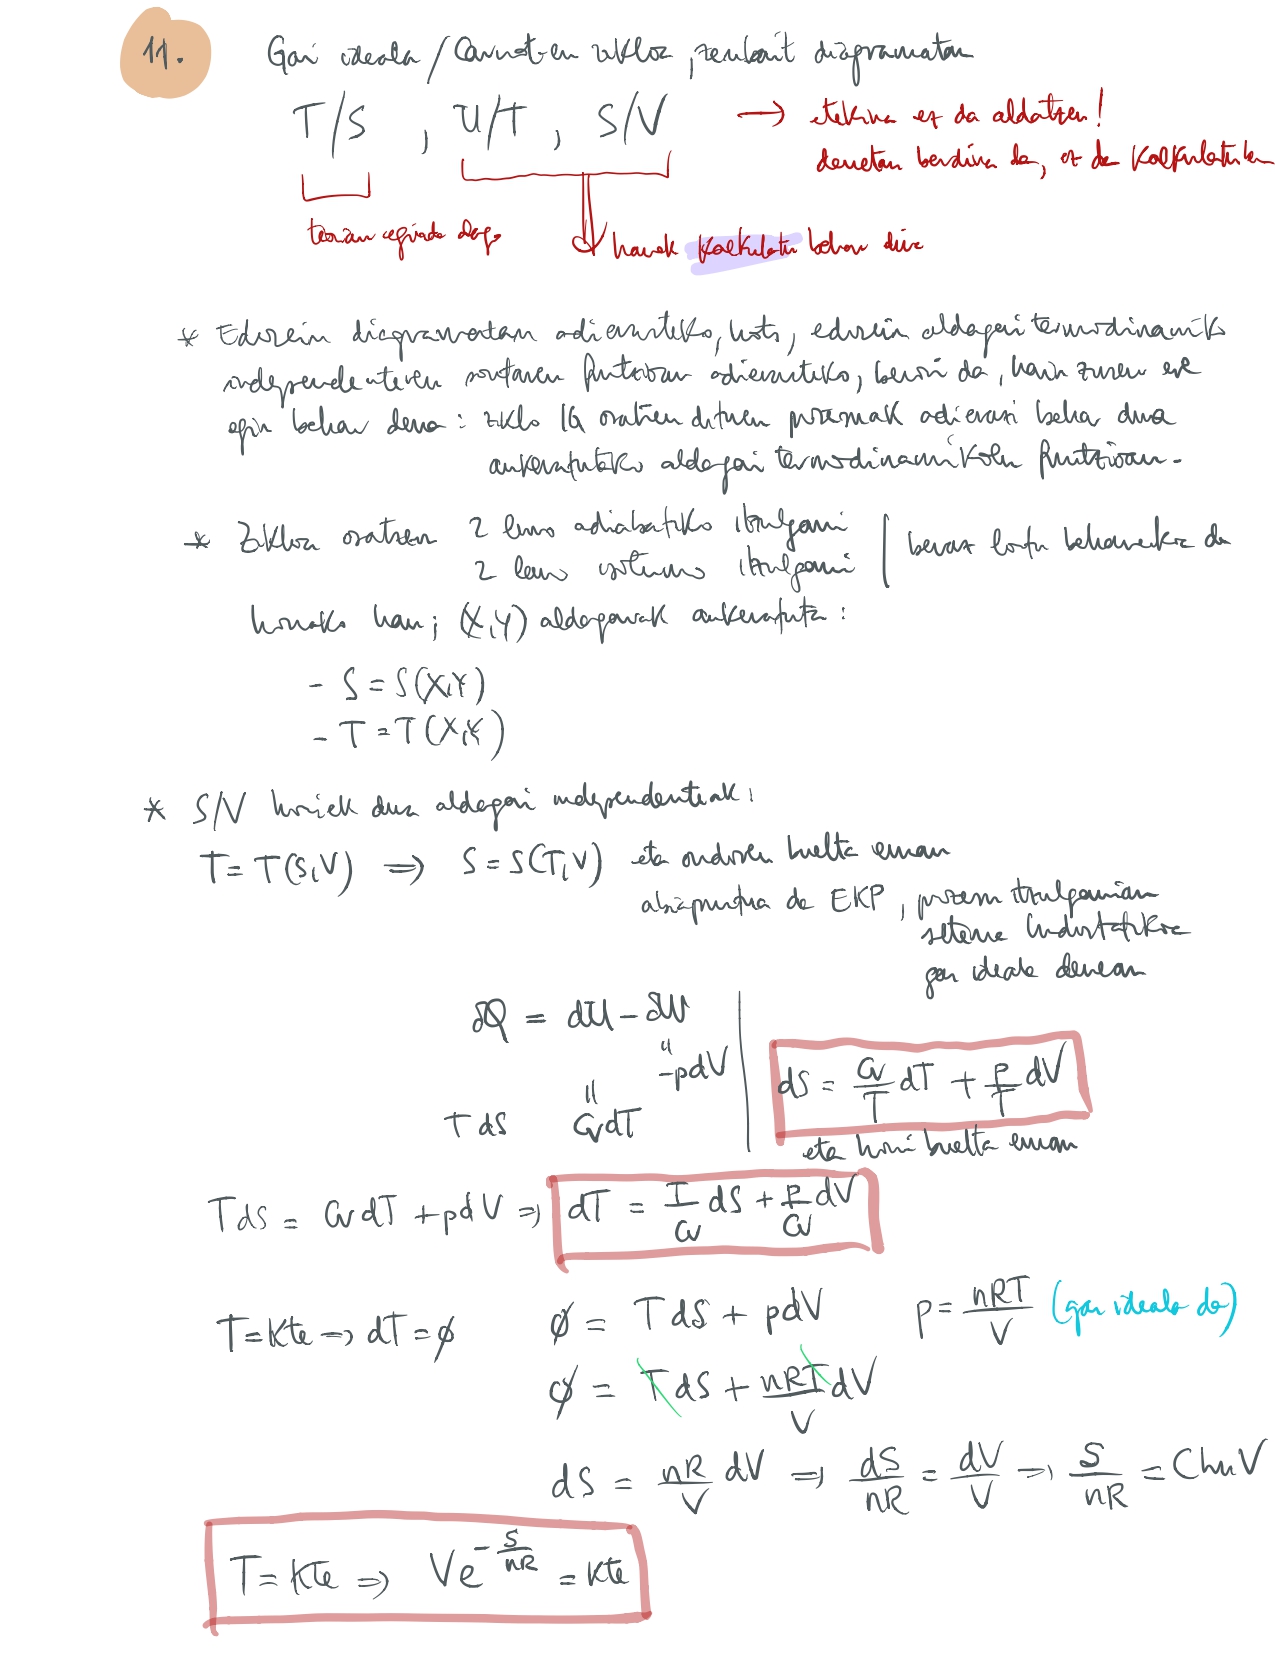 11.
Gas ideala / Carnot-en zikloa, zenbait diagramatan
T/S , U/T , S/V → etekina ez da aldatzen!
denetan berdina da, ez da kalkulatuko
teorian eginda dago
hauek kalkulatu behar dira
* Edozein diagramatan adierazteko, hots, edozein aldagai termodinamiko
independenteren funtzioan adierazteko, berori da, hain zuzen ere
egin behar dena: zikloa osatzen dituen prozesuak adierazi behar dira
aukeratutako aldagai termodinamikoen funtzioan.
* Zikloa osatzen 2 lerro adiabatiko itzulgarri
2 lerro isotermo itzulgarri | beraz lortu beharrekoa da
honako hau; (X,Y) aldagaiak aukeratuta:
- S = S(X,Y)
- T = T(X,Y)
* S/V horiek dira aldagai independenteak:
T = T(S,V) ⟹ S = S(T,V) eta ondoren buelta eman
abiapuntua da EKP, prozesu itzulgarrian
sistema hidrostatikoa
gas ideala denean
δQ = dU - δW
" -pdV
TdS " CvdT
dS = Cv/T dT + P/T dV
eta honi buelta eman
TdS = Cv dT + pdV ⇒ dT = T/Cv dS + P/Cv dV
T = kte → dT = ∅ ∅ = TdS + pdV p = nRT/V (gas ideala da)
∅ = TdS + nRT/V dV
dS = nR/V dV ⇒ dS/nR = dV/V → S/nR = C ln V
T = kte ⇒ Ve^{-S/nR} = kte